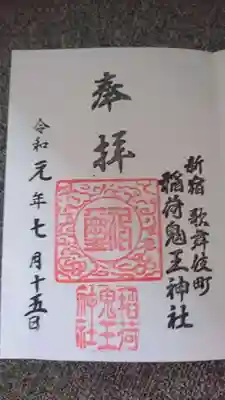 新宿 歌舞伎町
稲荷鬼王神社
奉拝
令和元年七月十五日
稲荷
鬼王
神社